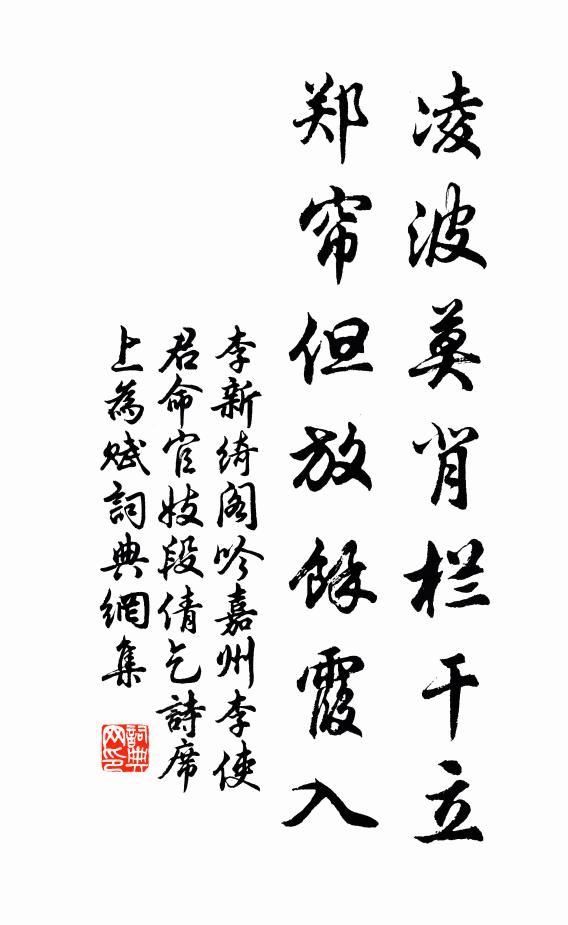 凌波莫肯栏干立
郑帘但放餘霞入
李新绮阁吟嘉州李使
君命官妓段倩乞詩席
上為赋詞典網集
詞典网印